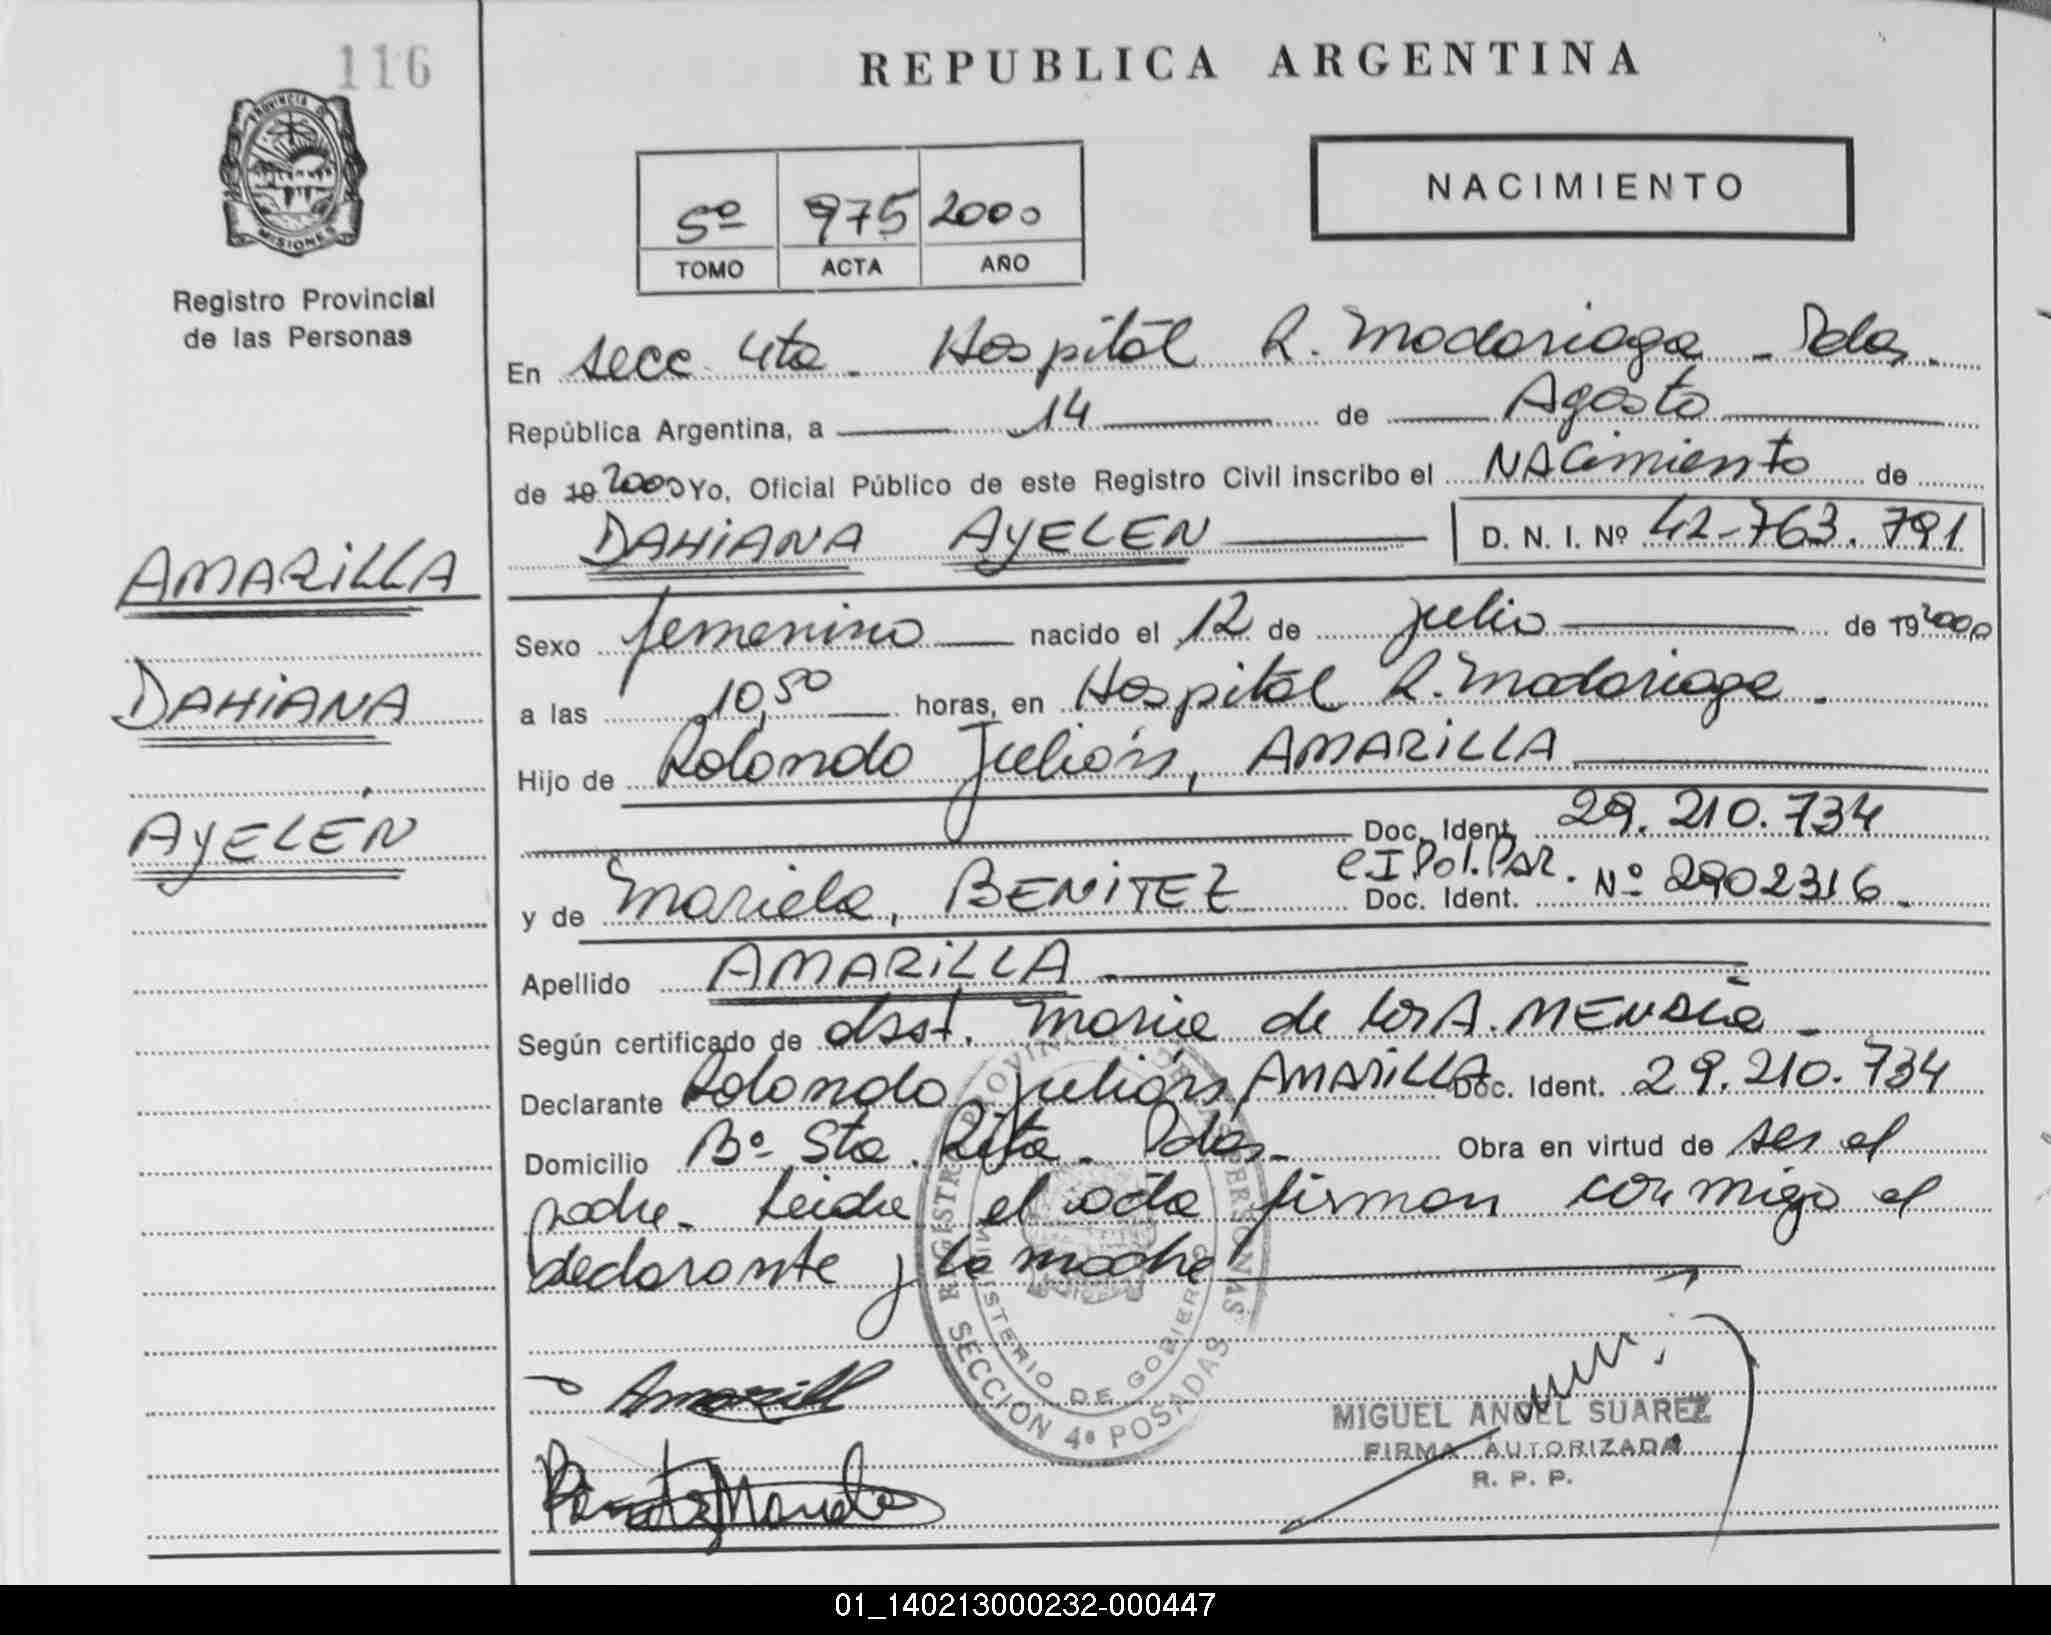 116
REPUBLICA ARGENTINA
PROVINCIA DE MISIONES
NACIMIENTO
5º 975 2000
TOMO ACTA AÑO
Registro Provincial
de las Personas
En secc 4ta. Hospital R. Madariaga - Pdas.
República Argentina, a 14 de Agosto
de 19 2000 Yo, Oficial Público de este Registro Civil inscribo el NACimiento de
DAHIANA AYELEN D. N. I. Nº 42-763.791
AMARILLA
DAHIANA
AYELÉN
Sexo femenino nacido el 12 de julio de 19 2000
a las 10,50 horas, en Hospital R. Madariaga.
Hijo de Rolando Julián, AMARILLA
Doc. Ident. 29.210.734
y de Mariela, BENITEZ Doc. Ident. C.I Pol. Par. Nº 2902316.
Apellido AMARILLA
Según certificado de obst. Maria de los A. MENDEZ -
Declarante Rolando Julián, AMARILLA Doc. Ident. 29.210.734
Domicilio Bº Sta. Rita - Pdas- Obra en virtud de ser el
padre. Leida el acta firman conmigo el
declarante y la madre
REGISTRO PROVINCIAL DE LAS PERSONAS
MINISTERIO DE GOBIERNO
SECCION 4ª POSADAS
Amarill
Benitez Mariela
MIGUEL ANGEL SUAREZ
FIRMA AUTORIZADA
R. P. P.
01_140213000232-000447